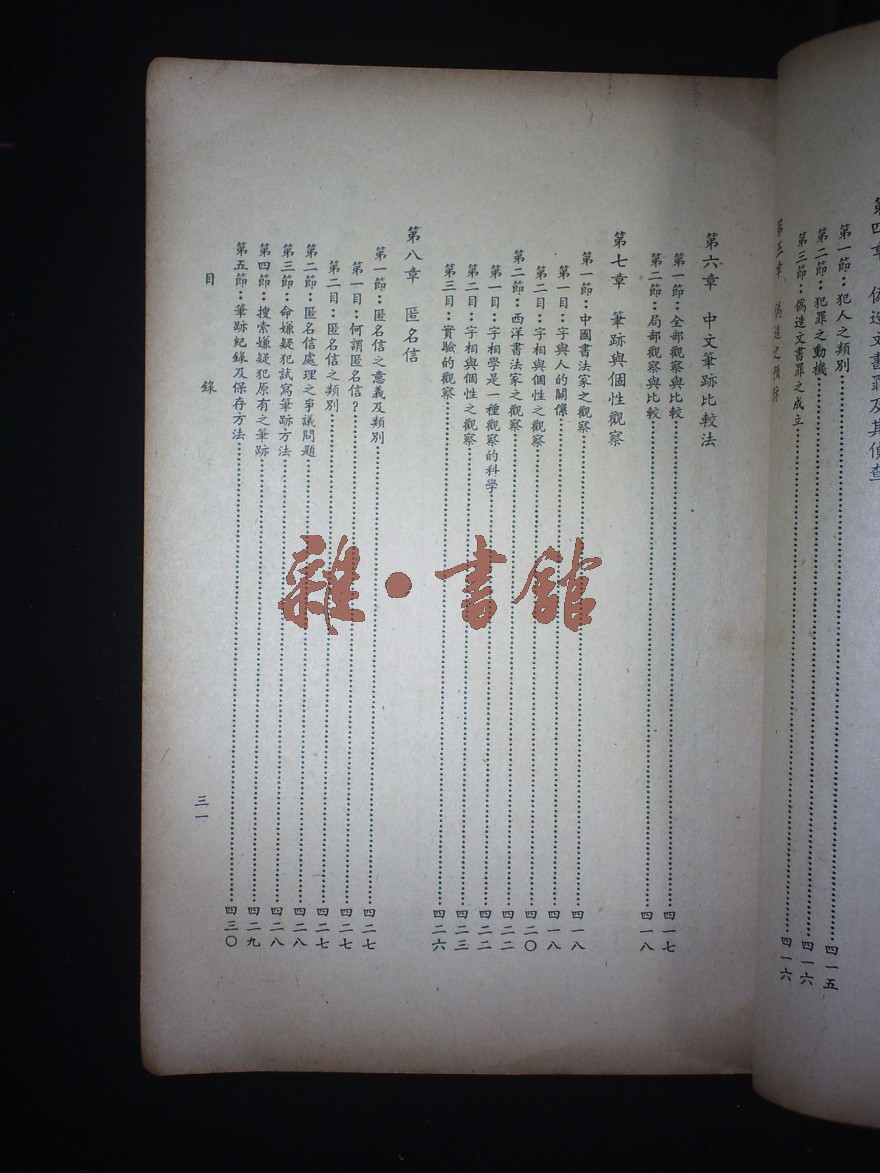 第四章 偽造文書罪及其偵查
第一節：犯人之類別………四一五
第二節：犯罪之動機………四一六
第三節：偽造文書罪之成立………四一六
第五章 偽造之預防
第六章 中文筆跡比較法
第一節：全部觀察與比較………四一七
第二節：局部觀察與比較………四一八
第七章 筆跡與個性觀察
第一節：中國書法家之觀察………四一八
第一目：字與人的關係………四一八
第二目：字相與個性之觀察………四二〇
第二節：西洋書法家之觀察………四二二
第一目：字相學是一種觀察的科學………四二二
第二目：字相與個性之觀察………四二三
第三目：實驗的觀察………四二六
第八章 匿名信
第一節：匿名信之意義及類別………四二七
第一目：何謂匿名信？………四二七
第二目：匿名信之類別………四二七
第二節：匿名信處理之爭議問題………四二八
第三節：命嫌疑犯試寫筆跡方法………四二八
第四節：搜索嫌疑犯原有之筆跡………四二九
第五節：筆跡紀錄及保存方法………四三〇
目 錄
三一
雜·書館